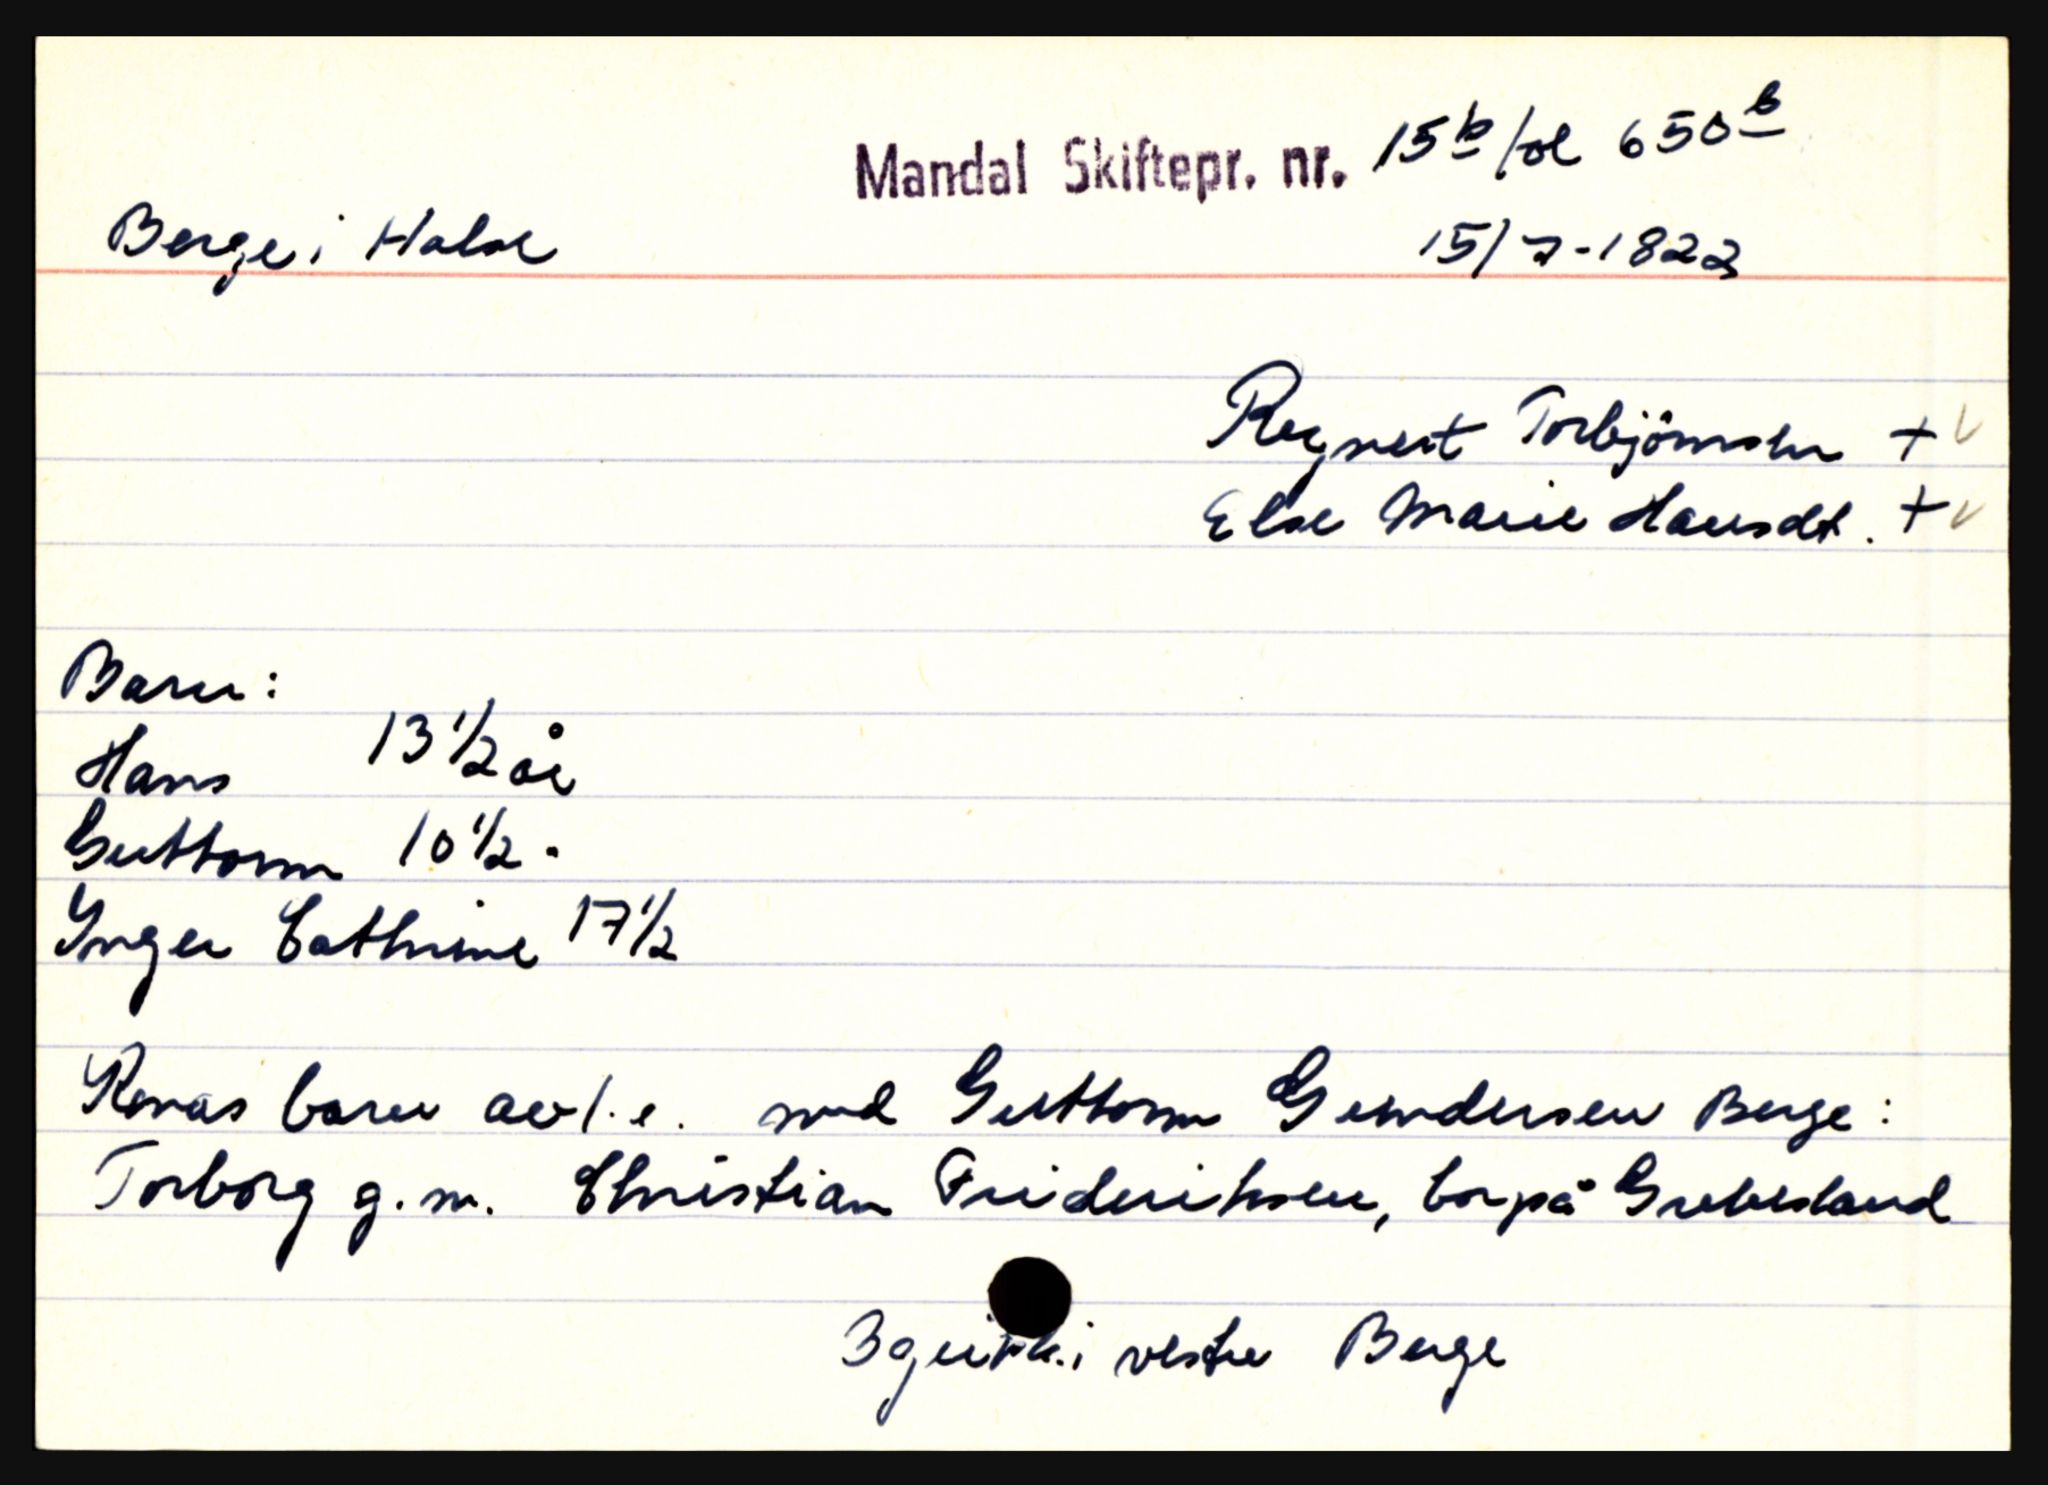 Mandal Skiftepr. nr. 15b fol 650b
Berge i Halse 15/7-1822
Regnert Torbjörnsen + v
Else Marie Hansdt. + v
Barn:
Hans 13 1/2 år
Guttorm 10 1/2 "
Inger Cathrine 17 1/2
Konas barn av l. e. med Guttorm Gundersen Berge:
Torborg g. m. Christian Frideriksen, bor på Grebbsland
3 guitk. i vestre Berge